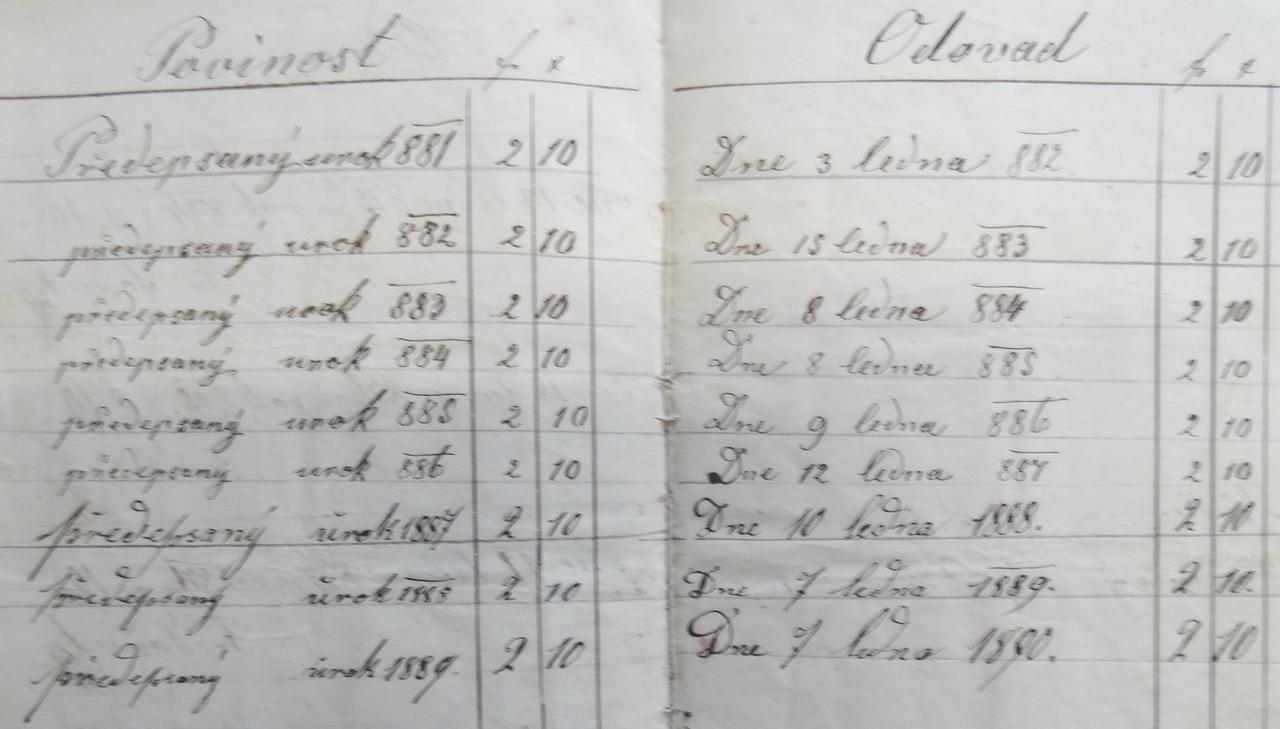 Povinost f x
Předepsaný urok 881 2 10
předepsaný urok 882 2 10
předepsaný urok 883 2 10
předepsaný urok 884 2 10
předepsaný urok 885 2 10
předepsaný urok 886 2 10
předepsaný úrok 1887 2 10
předepsaný úrok 1888 2 10
předepsaný úrok 1889. 2 10
Odovad f x
Dne 3 ledna 882 2 10
Dne 15 ledna 883 2 10
Dne 8 ledna 884 2 10
Dne 8 ledna 885 2 10
Dne 9 ledna 886 2 10
Dne 12 ledna 887 2 10
Dne 10 ledna 1888. 2 10
Dne 7 ledna 1889. 2 10.
Dne 7 ledna 1890. 2 10